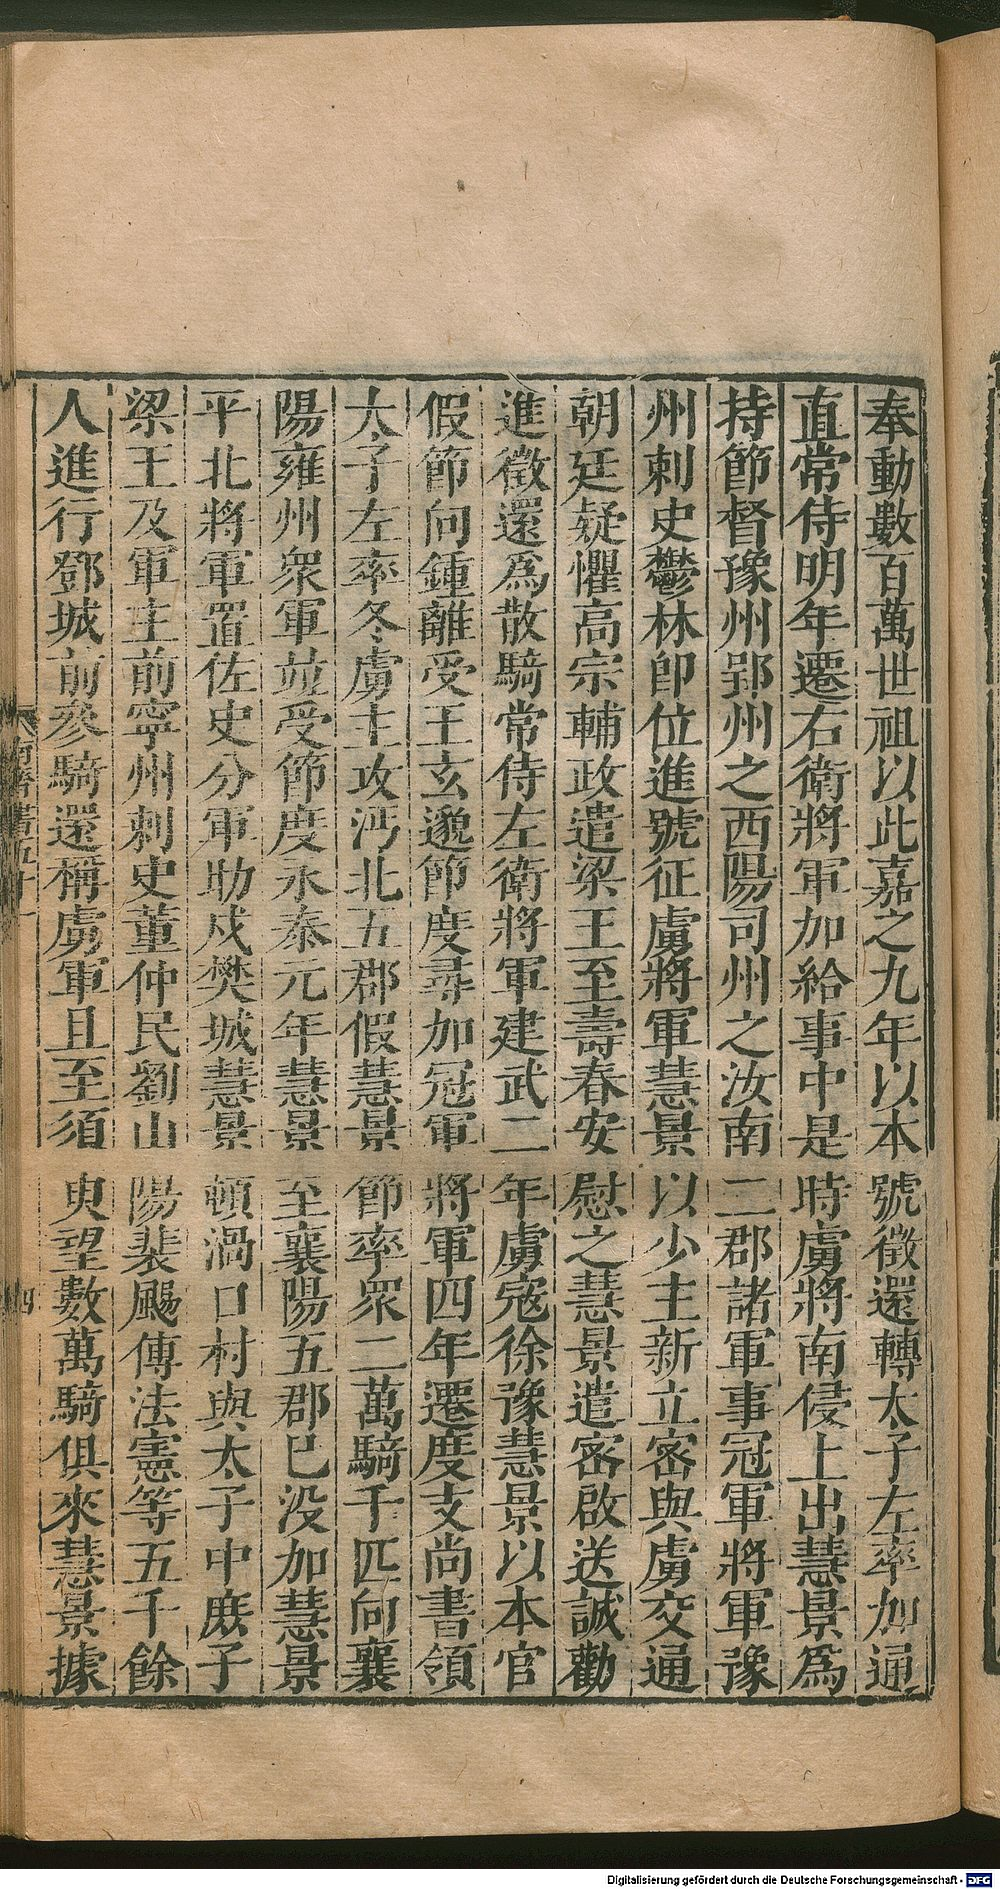 奉動數百萬世祖以此嘉之九年以本號徵還轉太子左率加通
直常侍明年遷右衛將軍加給事中是時虜將南侵上出慧景爲
持節督豫州郢州之西陽司州之汝南二郡諸軍事冠軍將軍豫
州刺史鬱林即位進號征虜將軍慧景以少主新立密與虜交通
朝廷疑懼高宗輔政遣梁王至壽春安慰之慧景遣密啟送誠勸
進徵還爲散騎常侍左衛將軍建武二年虜寇徐豫慧景以本官
假節向鍾離受王玄邈節度尋加冠軍將軍四年遷度支尚書領
太子左率冬虜主攻沔北五郡假慧景節率眾二萬騎千匹向襄
陽雍州眾軍並受節度永泰元年慧景至襄陽五郡巳没加慧景
平北將軍置佐史分軍助戍樊城慧景頓渦口村與太子中庶子
梁王及軍主前寧州刺史董仲民劉山陽裴颺傅法憲等五千餘
人進行鄧城前參騎還稱虜軍且至須臾望數萬騎俱來慧景據
南齊書五十一
四
Digitalisierung gefördert durch die Deutsche Forschungsgemeinschaft - DFG